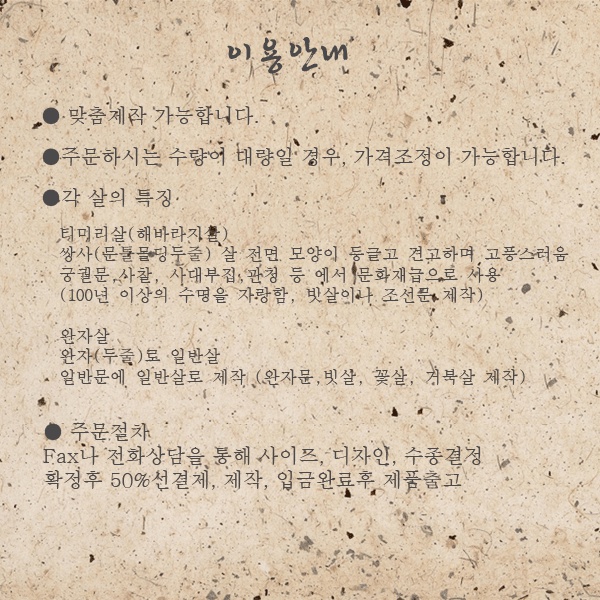 이용안내
● 맞춤제작 가능합니다.
●주문하시는 수량이 대량일 경우, 가격조정이 가능합니다.
●각 살의 특징
티미리살(해바라지살)
쌍사(문틀몰딩두줄) 살 전면 모양이 둥글고 견고하며 고풍스러움
궁궐문,사찰, 사대부집,관청 등 에서 문화재급으로 사용
(100년 이상의 수명을 자랑함, 빗살이나 조선문 제작)
완자살
완자(두줄)로 일반살
일반문에 일반살로 제작 (완자문,빗살, 꽃살, 거북살 제작)
● 주문절차
Fax나 전화상담을 통해 사이즈, 디자인, 수종결정
확정후 50%선결제, 제작, 입금완료후 제품출고